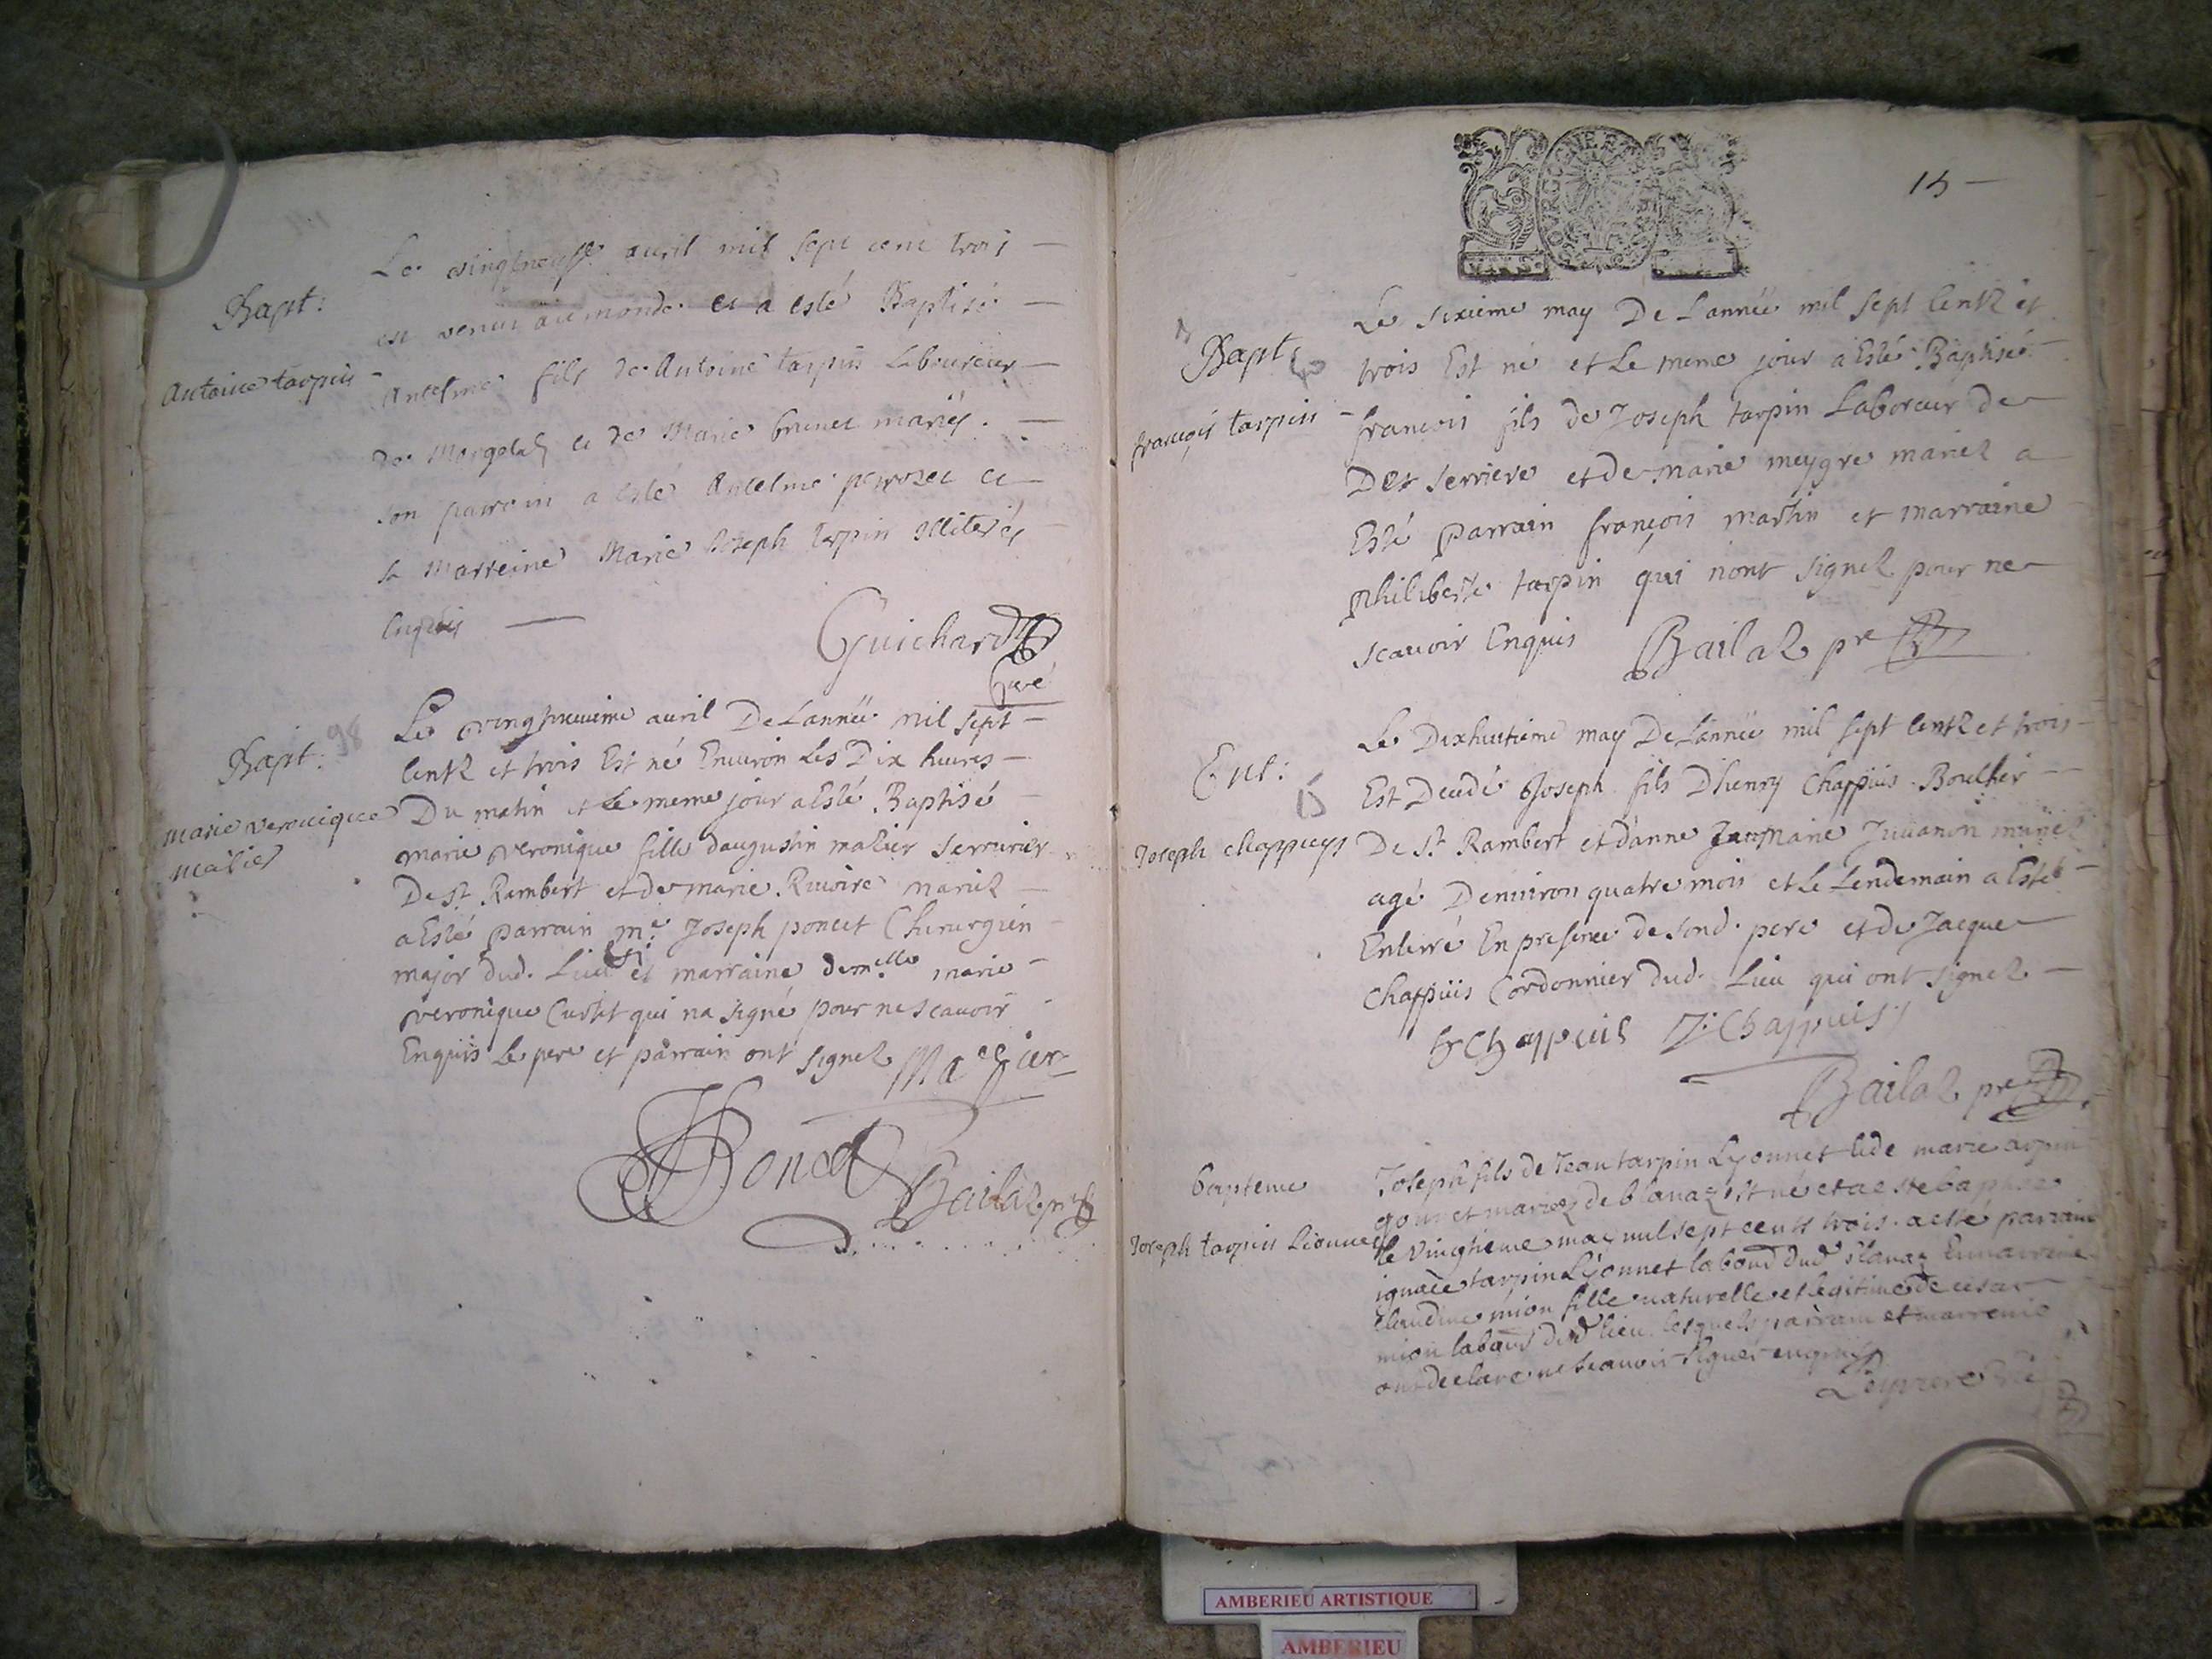 Le vingtneufve avril mil sept cent trois
Bapt:
est venu au monde et a esté Baptisé
Antoine tarpin
Antelme fils de Antoine tarpin Laboureur
de et de Marie brunet mariés.
son parrein a esté Antelme perrozet et
sa Marreine Marie Joseph tarpin illiterés
enquis
Guichard
Curé
Le vingtneuvieme avril De Lannée mil sept
Bapt: 98
centz et trois Est né Environ Les Dix heures
marie veronique
Du matin et Le meme jour a Esté Baptisé
malier
marie veronique fille daugustin malier serrurier
De St Rambert et de marie Rivoire mariez
a Esté parrain me Joseph poncet Chirurgien
major dud. Lieu et marraine demelle marie
veronique Curtet qui na signé pour ne scavoir
Enquis Le pere et parrain ont signez
Poncet
Bailaz pre
15
Le sixieme may De Lannée mil sept Centz et
Bapt
trois Est né et Le meme jour a Esté Baptisé
françois tarpin
francois fils de Joseph tarpin Laboreur de
serriere et de marie meygre mariez a
Esté parrain françois martin et marraine
philiberte tarpin qui n'ont signez pour ne
scavoir Enquis
Bailaz pre
Le Dixhuitieme may De Lannée mil sept Centz et trois
Ent:
15
Est Decedé Joseph fils D'henry Chappuis Boucher
Joseph chappuys
De St Rambert et danne marie Juvanon mariez
agé Denviron quatre mois et Le Lendemain a Esté
Enterré En presence de sond. pere et de Jacque
Chappuis Cordonnier dud. Lieu qui ont signez
h Chappuis J: Chappuis
Bailaz pre
bapteme
Joseph fils de Jean tarpin Lyonnet et de marie
et mariez de blanaz est né et a este baptise
Joseph tarpin Lionnet
le vingtieme may mil sept cents trois. a este parrain
ignace tarpin Lyonnet labour dud blanaz
claudine mion fille naturelle et legitime de cesar
mion labour dud lieu. lesquels parrain et marreine
ont declare ne scavoir signer enquis
AMBERIEU ARTISTIQUE
AMBERIEU